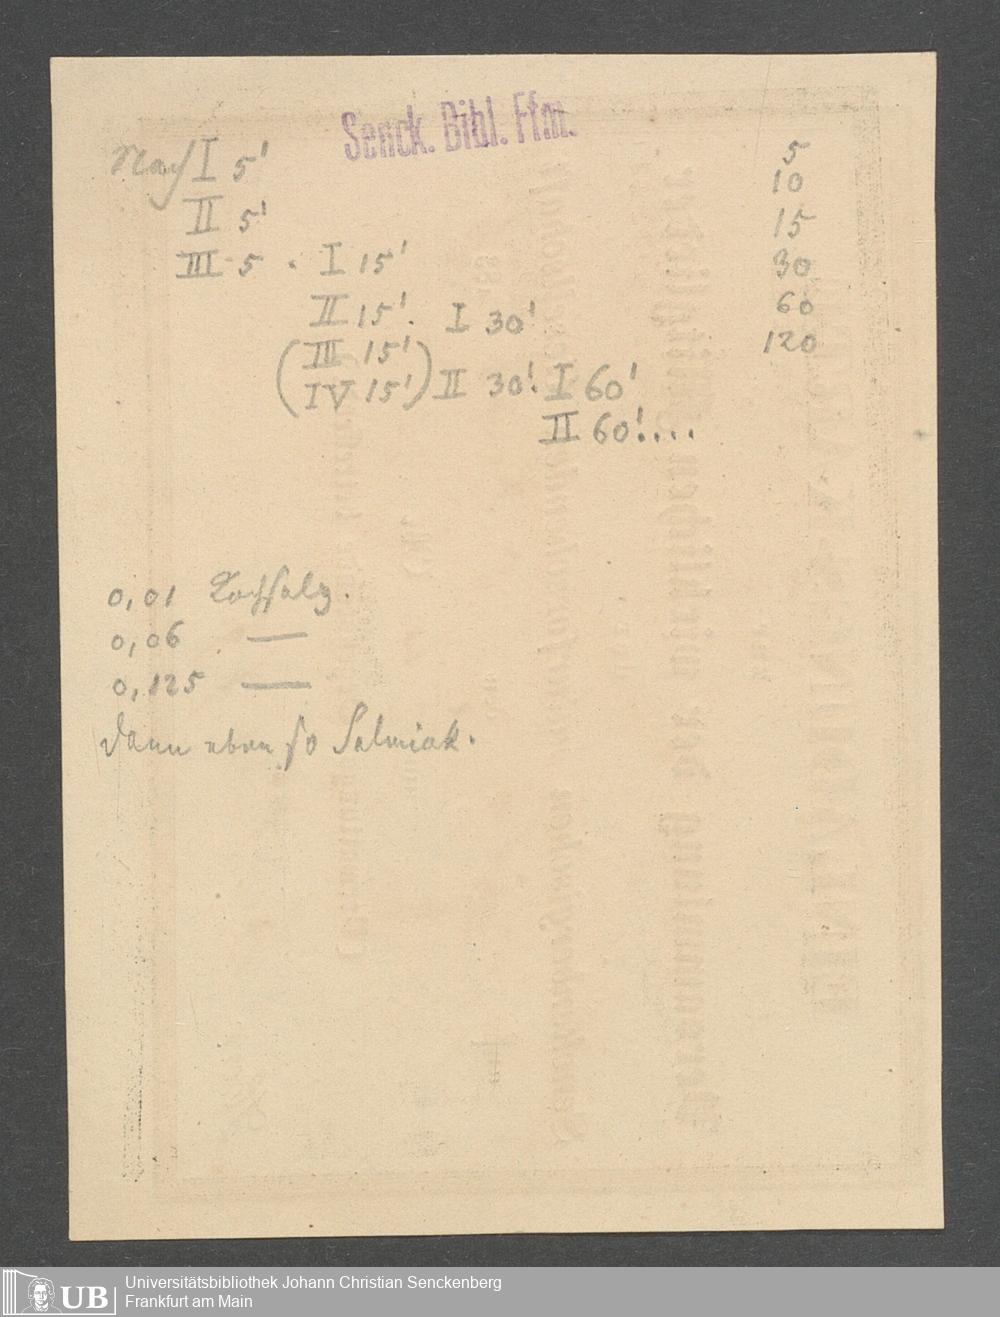 Senck. Bibl. Ffm.
Nach I 5'
II 5'
III 5 . I 15'
II 15'. I 30'
(III 15')
(IV 15') II 30'. I 60'
II 60'....
5
10
15
30
60
120
0,01 Kochsalz.
0,06 —
0,125 —
Dann eben so Salmiak.
UB
Universitätsbibliothek Johann Christian Senckenberg
Frankfurt am Main